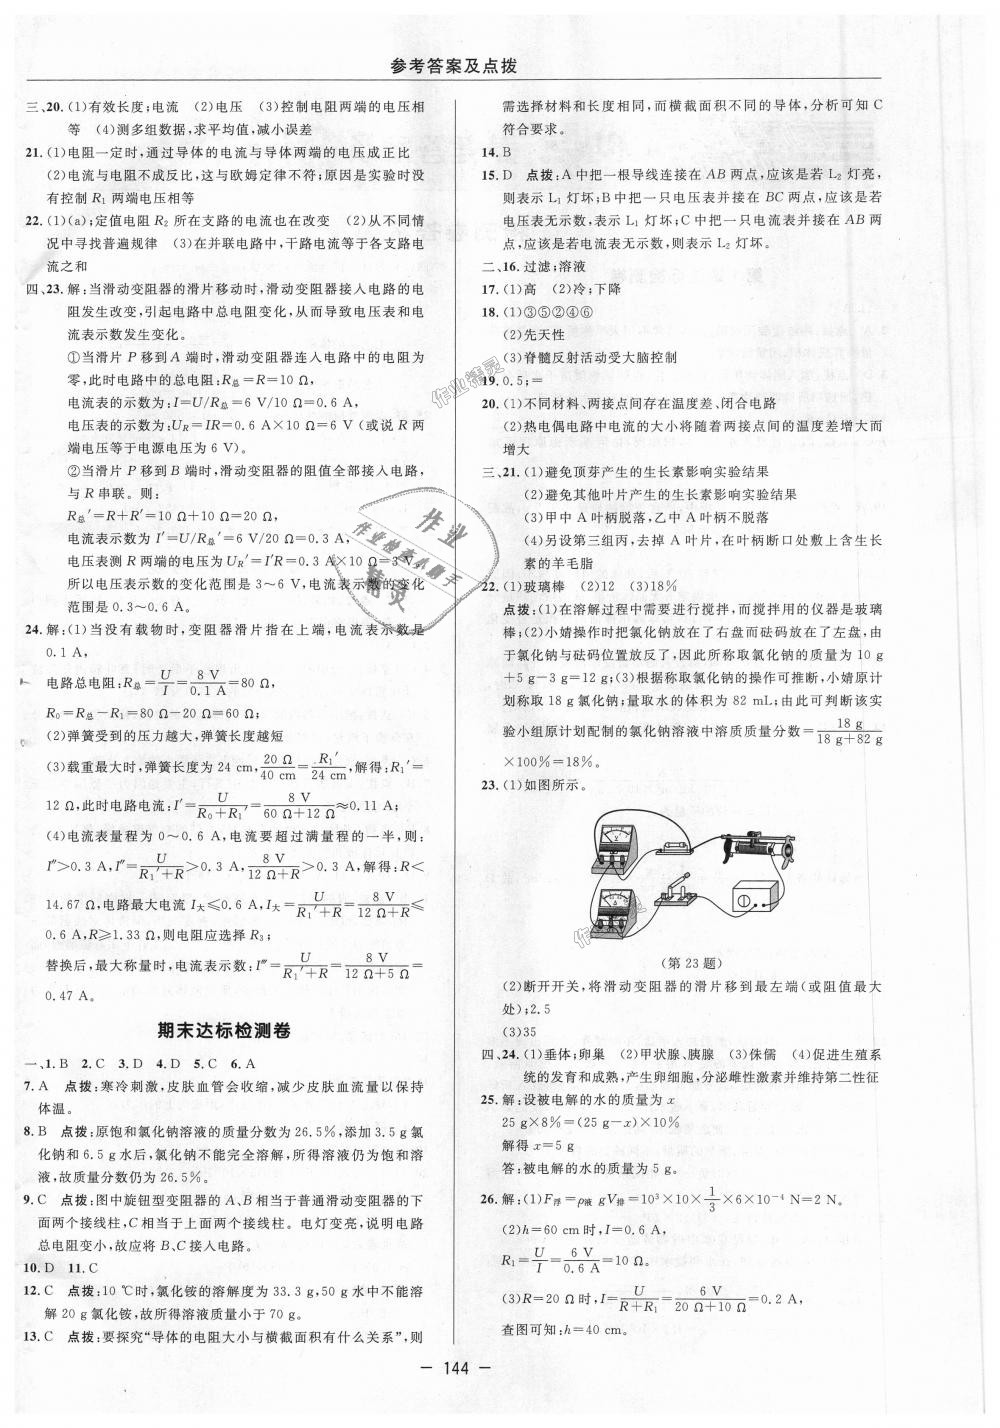 参考答案及点拨
三、20.(1)有效长度;电流　(2)电压　(3)控制电阻两端的电压相
等　(4)测多组数据,求平均值,减小误差
21.(1)电阻一定时,通过导体的电流与导体两端的电压成正比
(2)电流与电阻不成反比,这与欧姆定律不符;原因是实验时没
有控制 R₁ 两端电压相等
22.(1)(a);定值电阻 R₂ 所在支路的电流也在改变　(2)从不同情
况中寻找普遍规律　(3)在并联电路中,干路电流等于各支路电
流之和
四、23.解:当滑动变阻器的滑片移动时,滑动变阻器接入电路的电
阻发生改变,引起电路中总电阻变化,从而导致电压表和电
流表示数发生变化。
①当滑片 P 移到 A 端时,滑动变阻器连入电路中的电阻为
零,此时电路中的总电阻:R总=R=10 Ω,
电流表的示数为:I=U/R总=6 V/10 Ω=0.6 A,
电压表的示数为:U_R=IR=0.6 A×10 Ω=6 V(或说 R 两
端电压等于电源电压为 6 V)。
②当滑片 P 移到 B 端时,滑动变阻器的阻值全部接入电路,
与 R 串联。则:
R总′=R+R′=10 Ω+10 Ω=20 Ω,
电流表示数为 I′=U/R总′=6 V/20 Ω=0.3 A,
电压表测 R 两端的电压为 U_R′=I′R=0.3 A×10 Ω=3 V,
所以电压表示数的变化范围是 3~6 V,电流表示数的变化
范围是 0.3~0.6 A。
24.解:(1)当没有载物时,变阻器滑片指在上端,电流表示数是
0.1 A,
电路总电阻:R总=U/I=8 V/0.1 A=80 Ω,
R₀=R总-R₁=80 Ω-20 Ω=60 Ω;
(2)弹簧受到的压力越大,弹簧长度越短
(3)载重最大时,弹簧长度为 24 cm,20 Ω/40 cm=R₁′/24 cm,解得:R₁′=
12 Ω,此时电路电流:I′=U/(R₀+R₁′)=8 V/(60 Ω+12 Ω)≈0.11 A;
(4)电流表量程为 0~0.6 A,电流要超过满量程的一半,则:
I″>0.3 A,I″=U/(R₁′+R)>0.3 A,8 V/(12 Ω+R)>0.3 A,解得:R<
14.67 Ω,电路最大电流 I大≤0.6 A,I大=U/(R₁′+R)=8 V/(12 Ω+R)≤
0.6 A,R≥1.33 Ω,则电阻应选择 R₃;
替换后,最大称量时,电流表示数:I‴=U/(R₁′+R)=8 V/(12 Ω+5 Ω)=
0.47 A。
期末达标检测卷
一、1.B　2.C　3.D　4.D　5.C　6.A
7.A　点拨:寒冷刺激,皮肤血管会收缩,减少皮肤血流量以保持
体温。
8.B　点拨:原饱和氯化钠溶液的质量分数为 26.5%,添加 3.5 g 氯
化钠和 6.5 g 水后,氯化钠不能完全溶解,所得溶液仍为饱和溶
液,故质量分数仍为 26.5%。
9.C　点拨:图中旋钮型变阻器的 A、B 相当于普通滑动变阻器的下
面两个接线柱,C 相当于上面两个接线柱。电灯变亮,说明电路
总电阻变小,故应将 B、C 接入电路。
10.D　11.C
12.C　点拨:10 ℃时,氯化铵的溶解度为 33.3 g,50 g 水中不能溶
解 20 g 氯化铵,故所得溶液质量小于 70 g。
13.C　点拨:要探究“导体的电阻大小与横截面积有什么关系”,则
需选择材料和长度相同,而横截面积不同的导体,分析可知 C
符合要求。
14.B
15.D　点拨:A 中把一根导线连接在 AB 两点,应该是若 L₂ 灯亮,
则表示 L₁ 灯坏;B 中把一只电压表并接在 BC 两点,应该是若
电压表无示数,表示 L₁ 灯坏;C 中把一只电流表并接在 AB 两
点,应该是若电流表无示数,则表示 L₂ 灯坏。
二、16.过滤;溶液
17.(1)高　(2)冷;下降
18.(1)①③⑤②④⑥
(2)先天性
(3)脊髓反射活动受大脑控制
19.0.5;=
20.(1)不同材料、两接点间存在温度差、闭合电路
(2)热电偶电路中电流的大小将随着两接点间的温度差增大而
增大
三、21.(1)避免顶芽产生的生长素影响实验结果
(2)避免其他叶片产生的生长素影响实验结果
(3)甲中 A 叶柄脱落,乙中 A 叶柄不脱落
(4)另设第三组丙,去掉 A 叶片,在叶柄断口处敷上含生长
素的羊毛脂
22.(1)玻璃棒　(2)12　(3)18%
点拨:(1)在溶解过程中需要进行搅拌,而搅拌用的仪器是玻璃
棒;(2)小婧操作时把氯化钠放在了右盘而砝码放在了左盘,由
于氯化钠与砝码位置放反了,因此所称取氯化钠的质量为 10 g
+5 g-3 g=12 g;(3)根据称取氯化钠的操作可推断,小婧原计
划称取 18 g 氯化钠;量取水的体积为 82 mL;由此可判断该实
验小组原计划配制的氯化钠溶液中溶质质量分数=18 g/(18 g+82 g)
×100%=18%。
23.(1)如图所示。
V
A
(第 23 题)
(2)断开开关,将滑动变阻器的滑片移到最左端(或阻值最大
处);2.5
(3)35
四、24.(1)垂体;卵巢　(2)甲状腺、胰腺　(3)侏儒　(4)促进生殖系
统的发育和成熟,产生卵细胞,分泌雌性激素并维持第二性征
25.解:设被电解的水的质量为 x
25 g×8%=(25 g-x)×10%
解得 x=5 g
答:被电解的水的质量为 5 g。
26.解:(1)F浮=ρ液 gV排=10³×10×1/3×6×10⁻⁴ N=2 N。
(2)h=60 cm时,I=0.6 A,
R₁=U/I=6 V/0.6 A=10 Ω。
(3)R=20 Ω时,I=U/(R+R₁)=6 V/(20 Ω+10 Ω)=0.2 A,
查图可知:h=40 cm。
— 144 —
作业
作业检查小助手
精灵
作业精灵